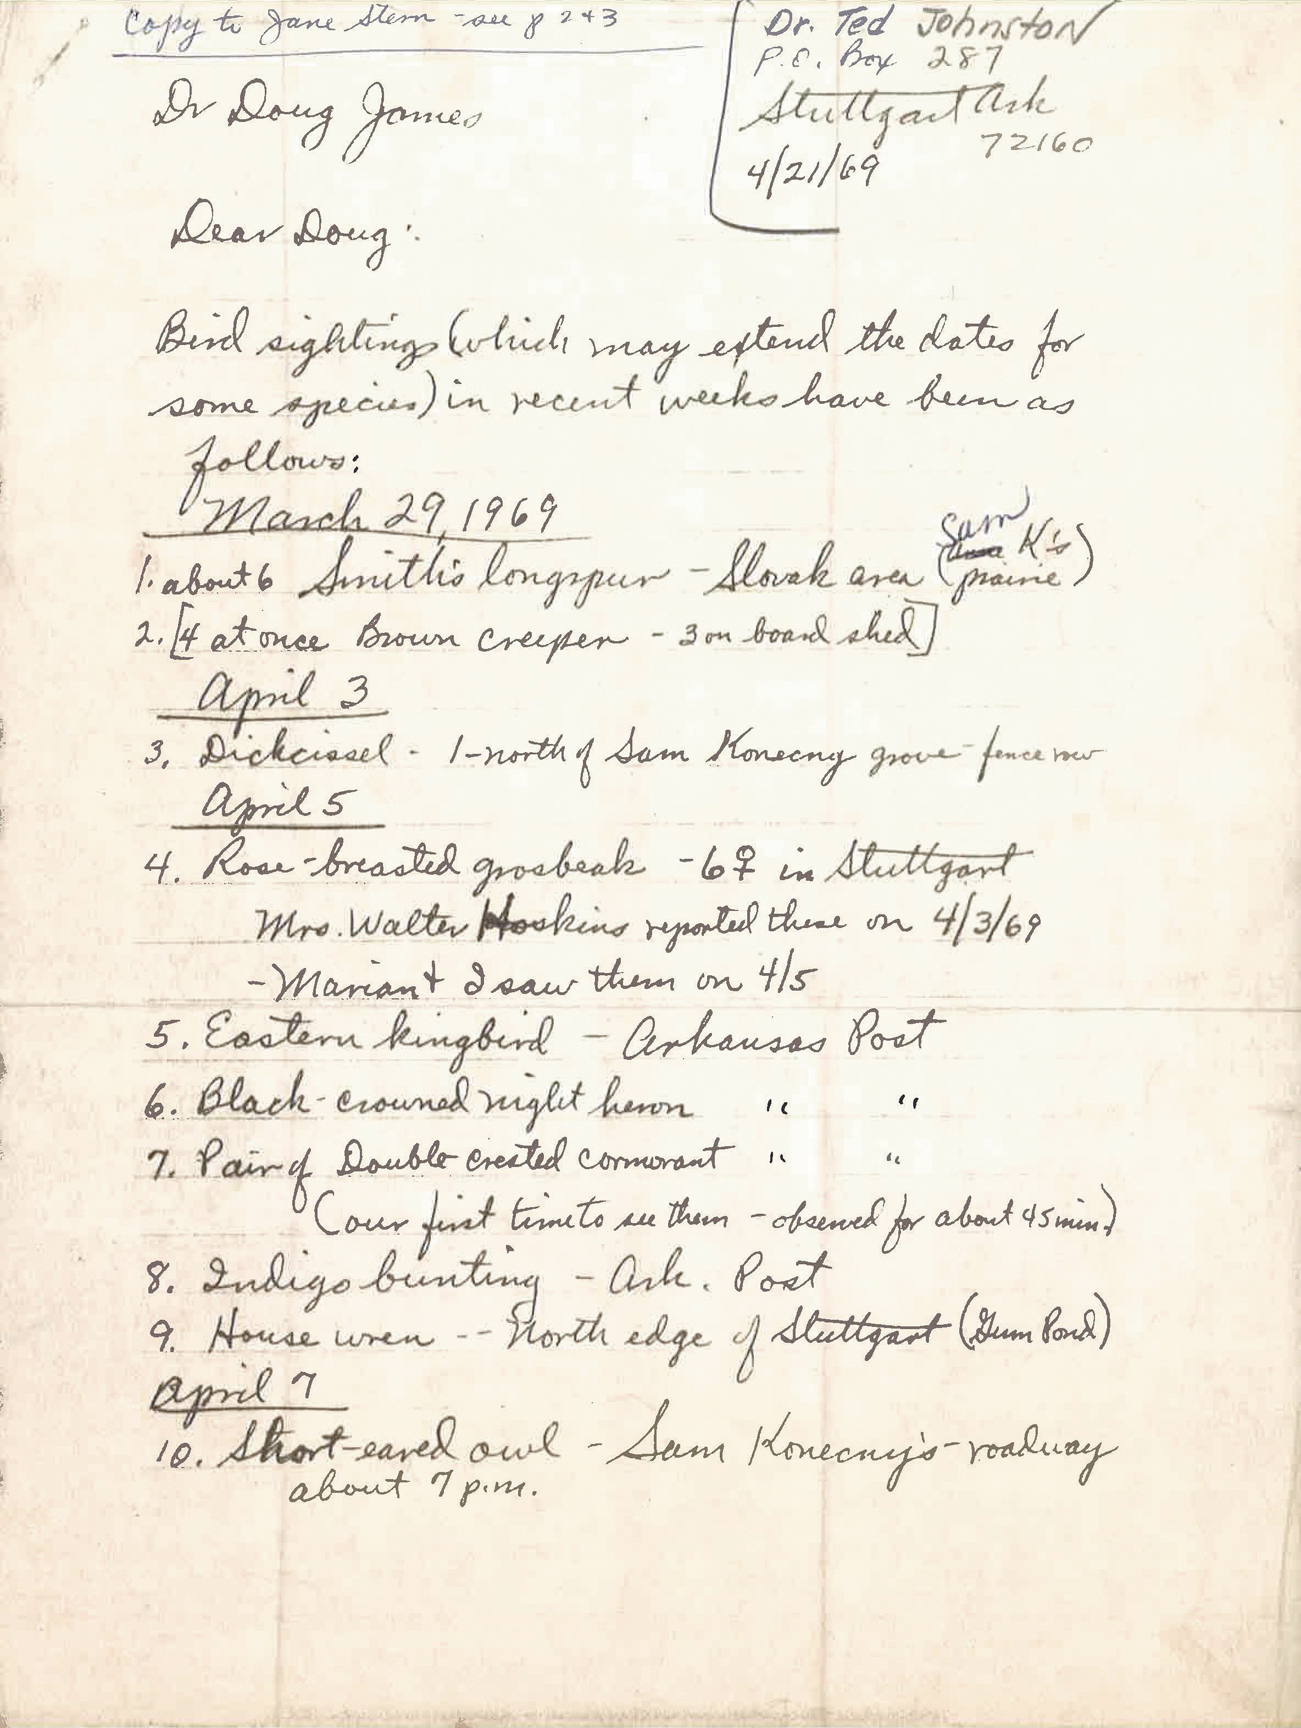 Copy to Jane Stern - see p 2 + 3
Dr. Ted Johnston
P.O. Box 287
Stuttgart Ark
72160
4/21/69
Dr Doug James
Dear Doug:
Bird sightings (which may extend the dates for
some species) in recent weeks have been as
follows:
March 29, 1969
Sam
1. about 6 Smith's longspur - Slovak area (K's prairie)
2. [4 at once Brown creeper - 3 on board shed]
April 3
3. Dickcissel - 1-north of Sam Konecny grove - fence row
April 5
4. Rose-breasted grosbeak - 6♀ in Stuttgart
Mrs. Walter Hoskins reported these on 4/3/69
- Marian + I saw them on 4/5
5. Eastern kingbird - Arkansas Post
6. Black-crowned night heron " "
7. Pair of Double crested cormorant " "
(our first time to see them - observed for about 45 min.)
8. Indigo bunting - Ark. Post
9. House wren -- North edge of Stuttgart (Gum Pond)
April 7
10. Short-eared owl - Sam Konecny's - roadway
about 7 p.m.